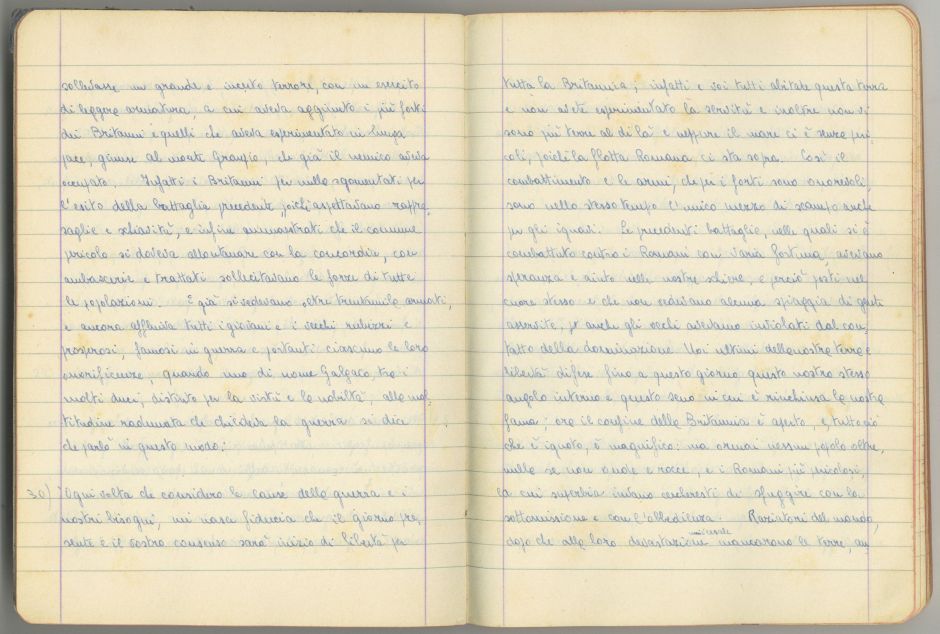 sollevasse un grande e incerto terrore, con un esercito
di leggera armatura, a cui aveva aggiunto i più forti
dei Britanni e quelli che aveva esperimentato in lunga
pace, giunse al monte Graupio, che già il nemico aveva
occupato. Infatti i Britanni per nulla sgomentati per
l'esito della battaglia precedente, poiché aspettavano rappre
saglie e schiavitù, e infine ammaestrati che il comune
pericolo si doveva allontanare con la concordia, con
ambascerie e trattati sollecitavano le forze di tutte
le popolazioni. E già si vedevano oltre trentamila armati,
e ancora affluiva tutti i giovani e i vecchi robizzi e
prosperosi, famosi in guerra e portanti ciascuno le loro
onorificenze, quando uno di nome Galgaco, tra i
molti duci, distinto per la virtù e la nobiltà, alla mol
titudine radunata che chiedeva la guerra si dice
che parlò in questo modo:
30) "Ogni volta che considero le cause della guerra e i
nostri bisogni, mi nasce fiducia che il giorno pre
sente e il vostro consenso sarà inizio di libertà per
tutta la Britannia; infatti e voi tutti abitate questa terra
e non avete esperimentato la servitù e inoltre non vi
sono più terre al di là e neppure il mare ci è senza peri
coli, poiché la flotta Romana ci sta sopra. Così il
combattimento e le armi, che per i forti sono onorevoli,
sono nello stesso tempo l'unico mezzo di scampo anche
per gli ignavi. Le precedenti battaglie, nelle quali si è
combattuto contro i Romani con varia fortuna, avevano
speranza e aiuto nelle nostre schiere, e perciò posti nel
cuore stesso e che non vedevano alcuna spiaggia di genti
asservite, anche gli occhi avevamo inviolati dal con
tatto della dominazione. Noi ultimi della nostra terra e
libertà difese fino a questo giorno questo nostro stesso
angolo interno e questo seno in cui è rinchiusa la nostra
fama; ora il confine della Britannia è aperto, e tutto ciò
che è ignoto, è magnifico: ma ormai nessun popolo oltre,
nulla se non onde e rocce, e i Romani più pericolosi,
la cui superbia invano cerchereste di sfuggire con la
sottomissione e con l'obbedienza. Razziatori del mondo,
dopo che alla loro devastazione universale mancarono le terre, an